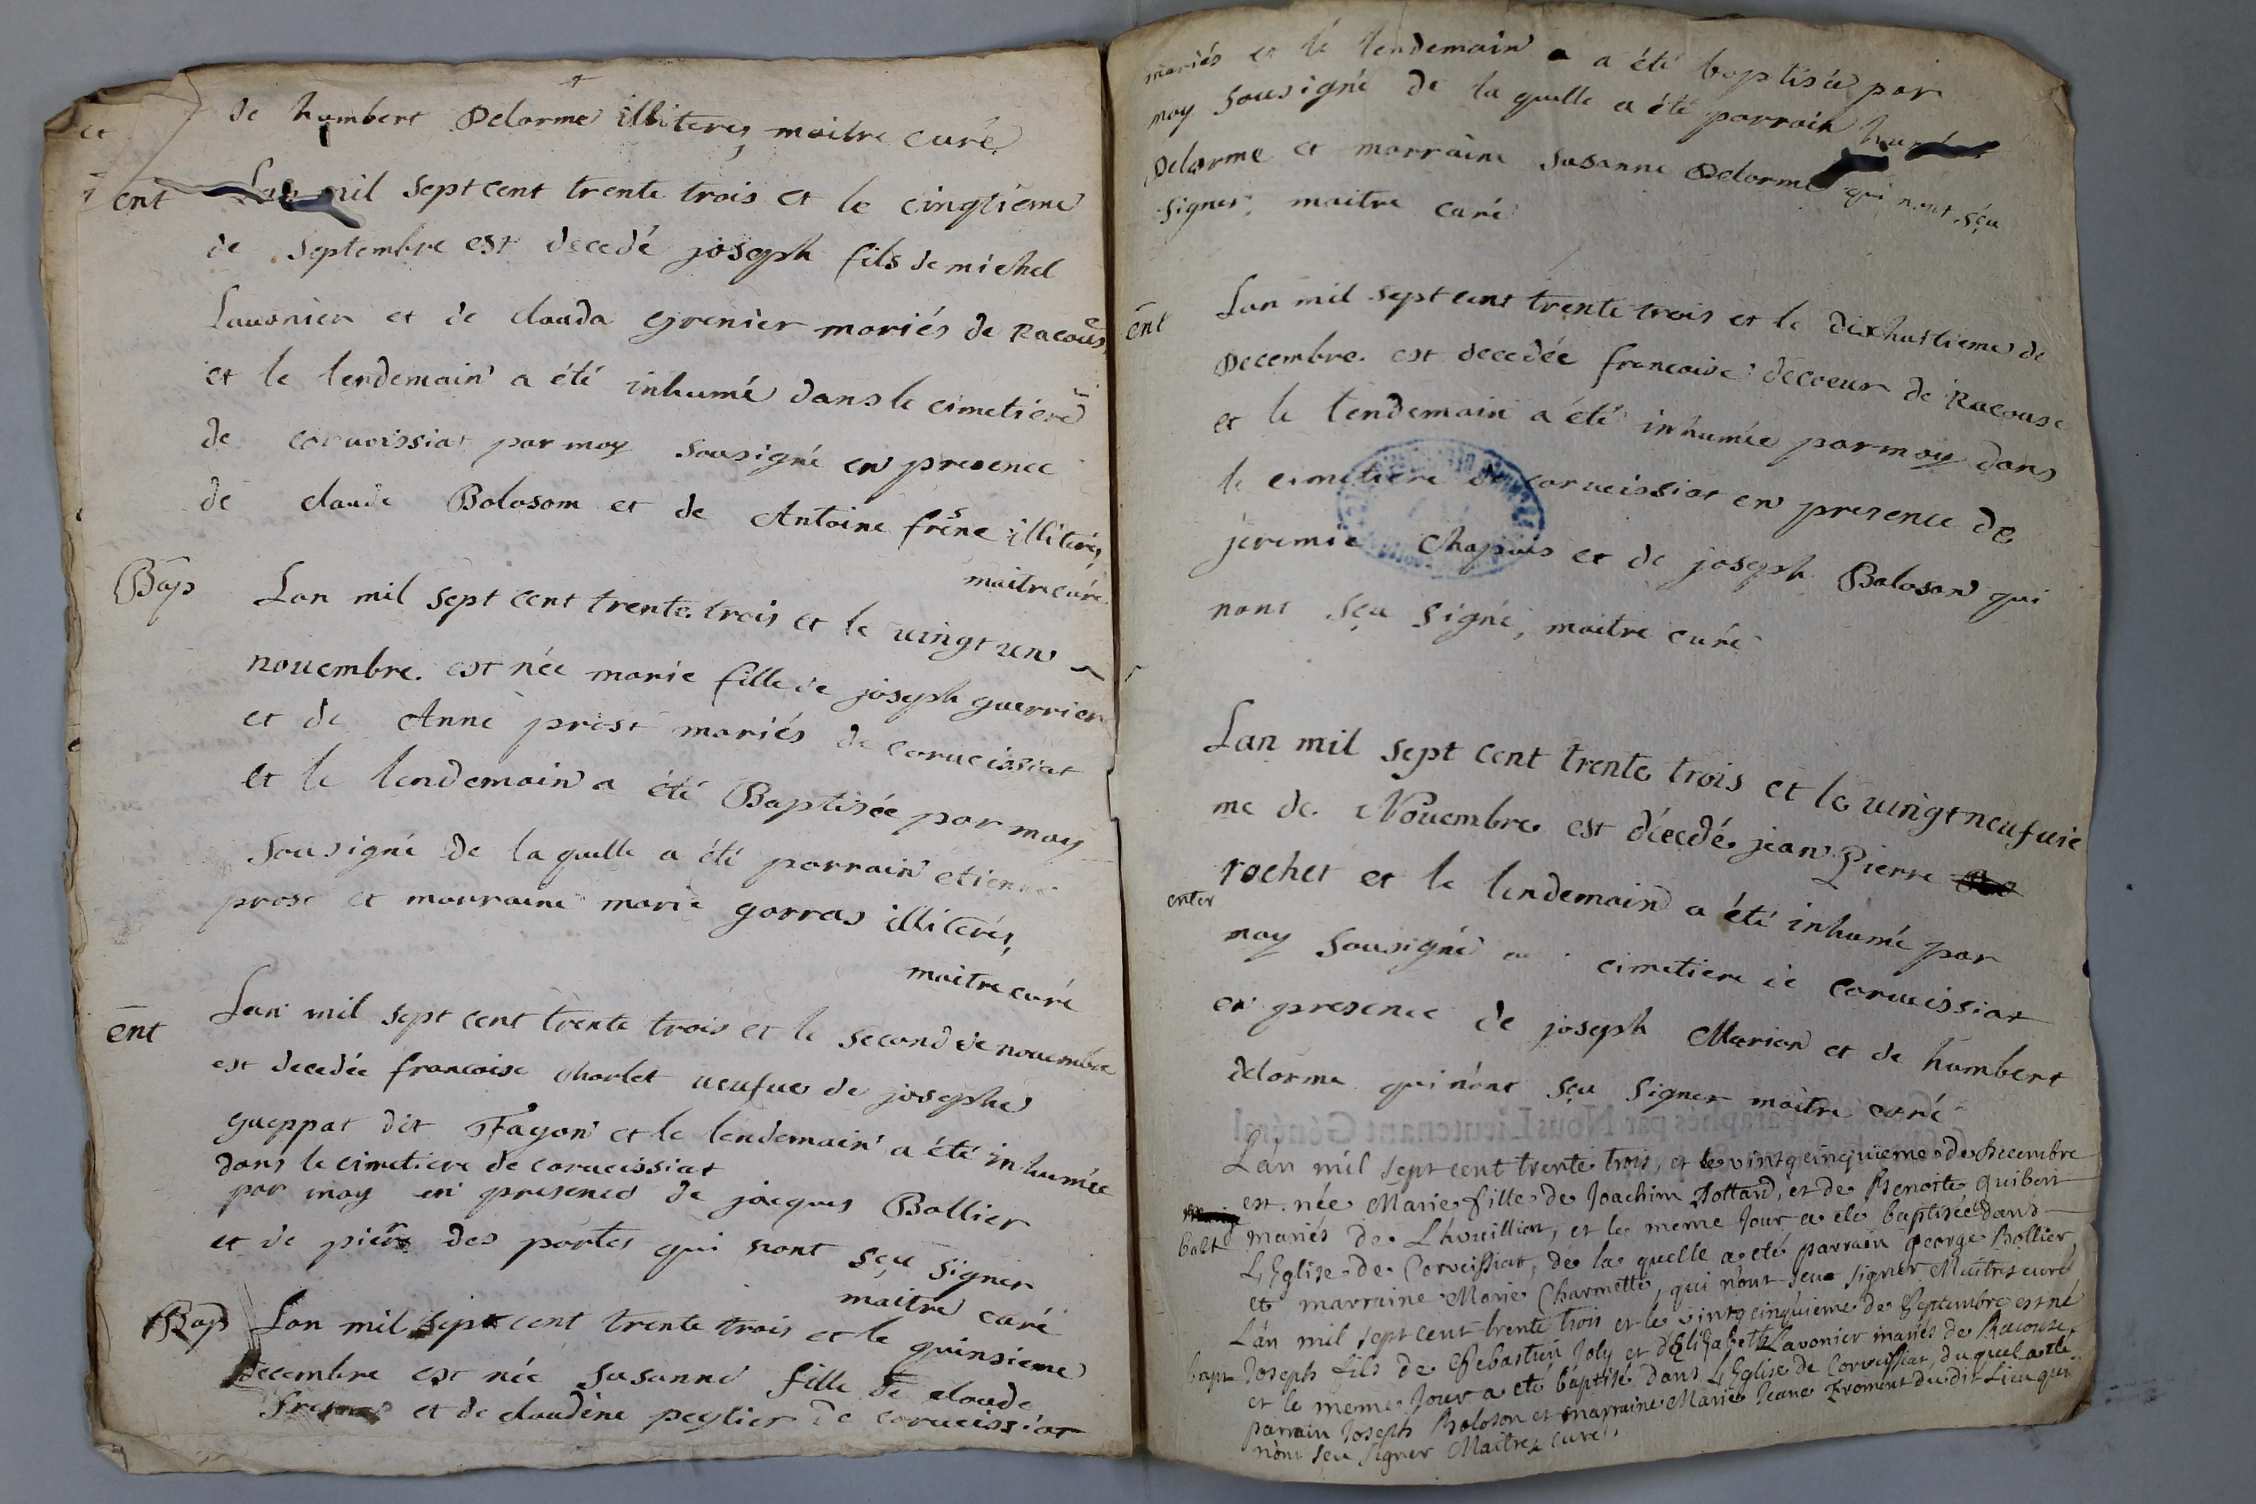 de humbert Delorme illiteres maitre curé
ent Lan mil sept cent trente trois et le cinqtieme
de septembre est decedé joseph fils de michel
Lauonier et de clauda grenier mariés de Racouse
et le lendemain a été inhumé dans le cimetiere
de corueissiat par moy sousigné en presence
de claude Bolosom et de Antoine frene illiterés
maitre curé
Bap Lan mil sept cent trente trois et le uingt un
nouembre est née marie fille de joseph guerrier
et de Anne prost mariés de corueissiat
et le lendemain a été Baptisée par moy
sousigné de la quelle a été parrain etienne
prost et marraine marie gorras illiterés,
maitre curé
ent Lan mil sept cent trente trois et le second de nouembre
est decedée francoise charlet ueufue de josephe
gueppat dit Fayon et le lendemain a été inhumée
dans le cimetiere de corueissiat
par moy en presence de jacques Bollier
et de pierre des portes qui nont sçu signer
maitre curé
Bap Lan mil sept cent trente trois et le quinsieme
decembre est née susanne fille de claude
et de claudine peylier de corueissiat
mariés et le lendemain a été baptisée par
moy sousigné de la quelle a été parrain
Delorme et marraine susanne Delorme qui nont sçu
signer, maitre curé
ent Lan mil sept cent trente trois et le dixhuitieme de
Decembre est decedée francoise decoeur de Racouse
et le lendemain a été inhumée par moy dans
le cimetiere de corueissiat en presence de
jeremie Chapuis et de joseph Boloson qui
nont sçu signé, maitre curé
Lan mil sept cent trente trois et le uingt neufuie
me de Nouembre est décedé jean Pierre
enter rochet et le lendemain a été inhumé par
moy sousigné au cimetiere de corueissiat
en presence de joseph Marion et de humbert
delorme qui n'ont sçu signer maitre curé
L'an mil sept cent trente trois, et le vintgcinquieme de Decembre
est née Marie fille de Joachim Dottard, et de Benoite Guibert
bapt mariés de Lhueillion, et le meme Jour a ete baptisée dans
L'Eglise de Corveissiat, de la quelle a eté parrain george Bollier
et marraine Marie Charmette, qui n'ont sceu signer Maitre curé
L'an mil sept cent trente trois et le vintgcinquieme de Septembre est né
bapt Joseph fils de Sebastien Joly et d'Elizabeth Lavonier mariés de Racouse,
et le meme Jour a eté baptisé dans L'Eglise de Corveissiat, du quel a eté
parrain Joseph Boloson et marraine Marie Jeane Froment du dit Lieu qui
n'ont sceu signer Maitre curé.